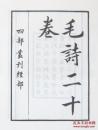 毛詩二十
卷
四部叢刊經部